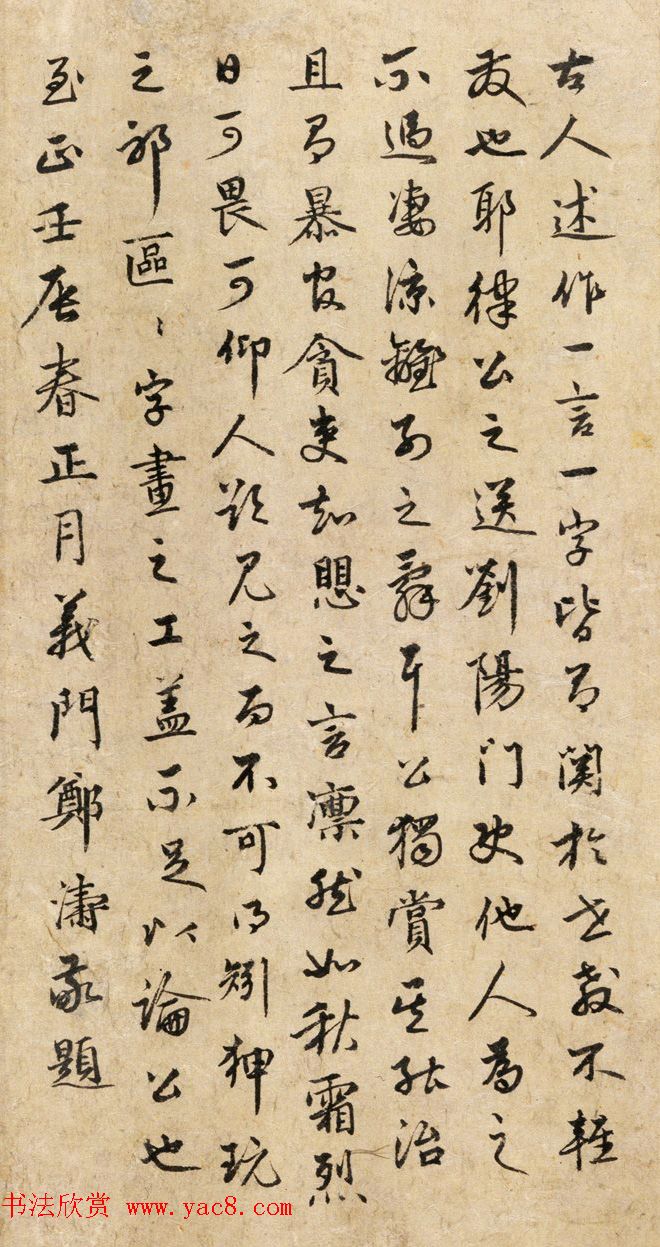 古人述作一言一字皆有関於世教不輕
發也耶律公之送劉陽门使他人為之
不過凄涼離別之辭耳公獨賞其能治
且有暴官貪吏知愳之言凛然如秋霜烈
日可畏可仰人欲見之而不可得矧狎玩
之耶區〻字畫之工盖不足以論公也
至正壬辰春正月義門鄭濤敬題
书法欣赏 www.yac8.com